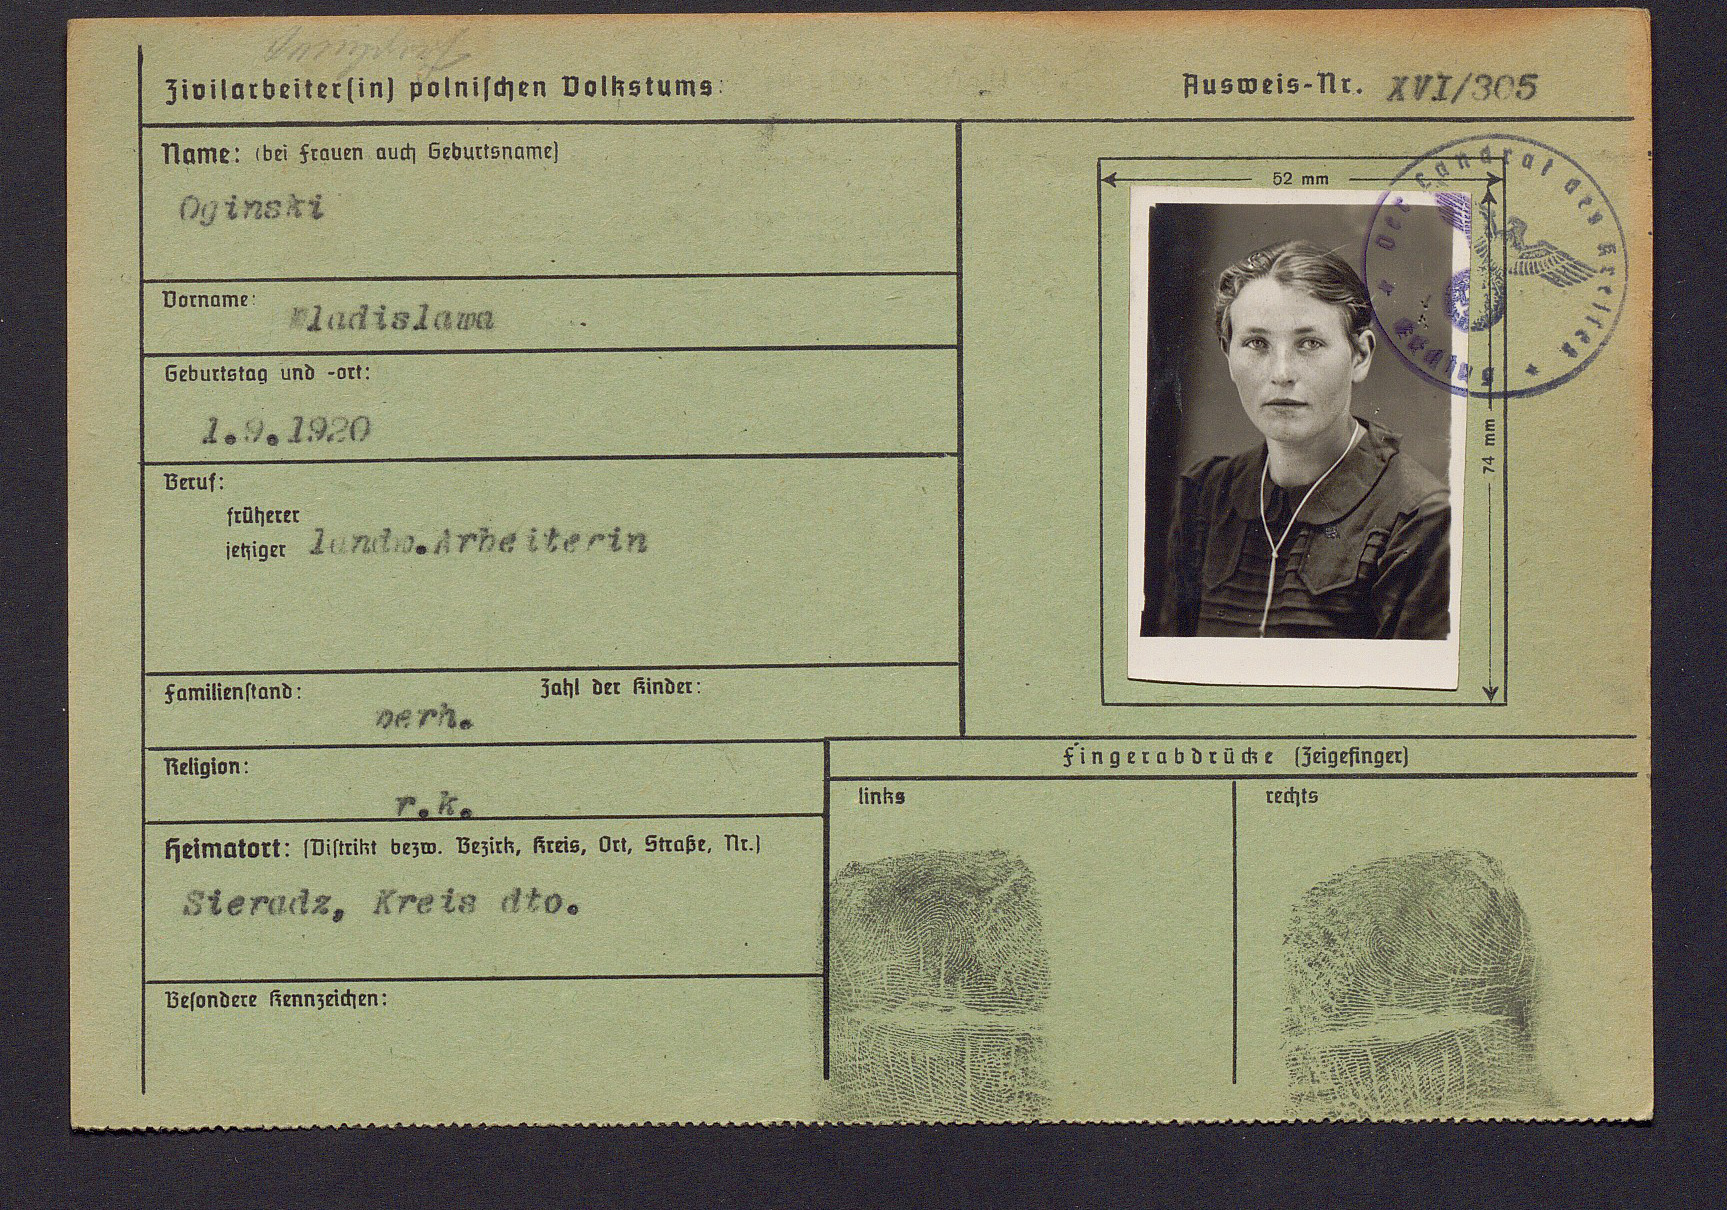 Zivilarbeiter(in) polnischen Volkstums:
Ausweis-Nr. XVI/305
Name: (bei Frauen auch Geburtsname)
Oginski
Vorname: Wladislawa
Geburtstag und -ort:
1.9.1920
Beruf:
früherer
jetziger landw.Arbeiterin
Familienstand: verh. Zahl der Kinder:
Religion:
r.k.
Heimatort: (Distrikt bezw. Bezirk, Kreis, Ort, Straße, Nr.)
Sieradz, Kreis dto.
Besondere Kennzeichen:
52 mm
74 mm
Der Landrat des Kreises
Fingerabdrücke (Zeigefinger)
links
rechts